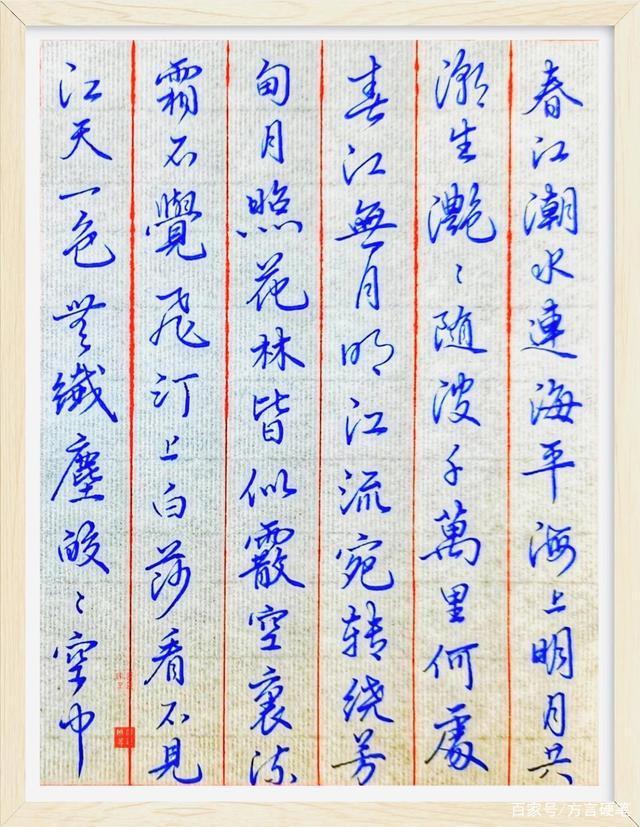 春江潮水連海平海上明月共
潮生灧〻随波千萬里何處
春江無月明江流宛转绕芳
甸月照花林皆似霰空裏流
霜不覺飛汀上白莎看不見
江天一色無纖塵皎〻空中
百家号/方言硬笔